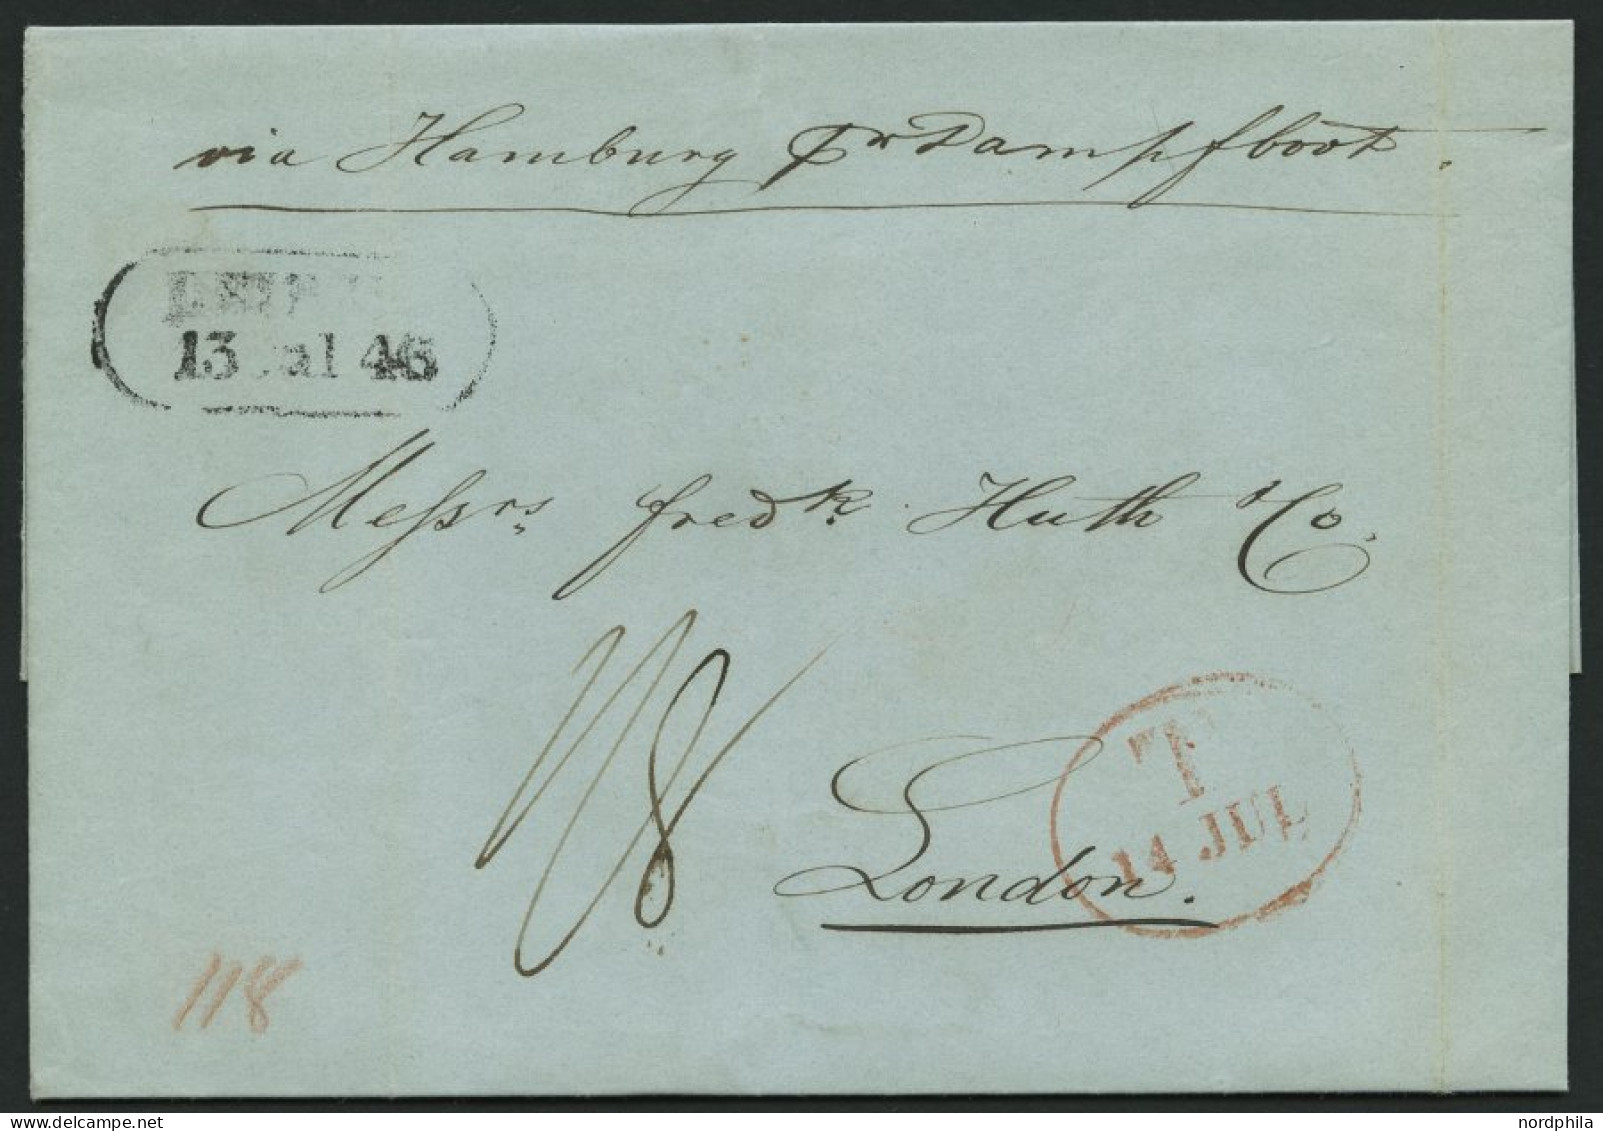 via Hamburg pr Dampfboot.
13 Jul 46
Messrs fredk. Huth & Co.
1/8
T
14 JUL
London.
118
nordphila